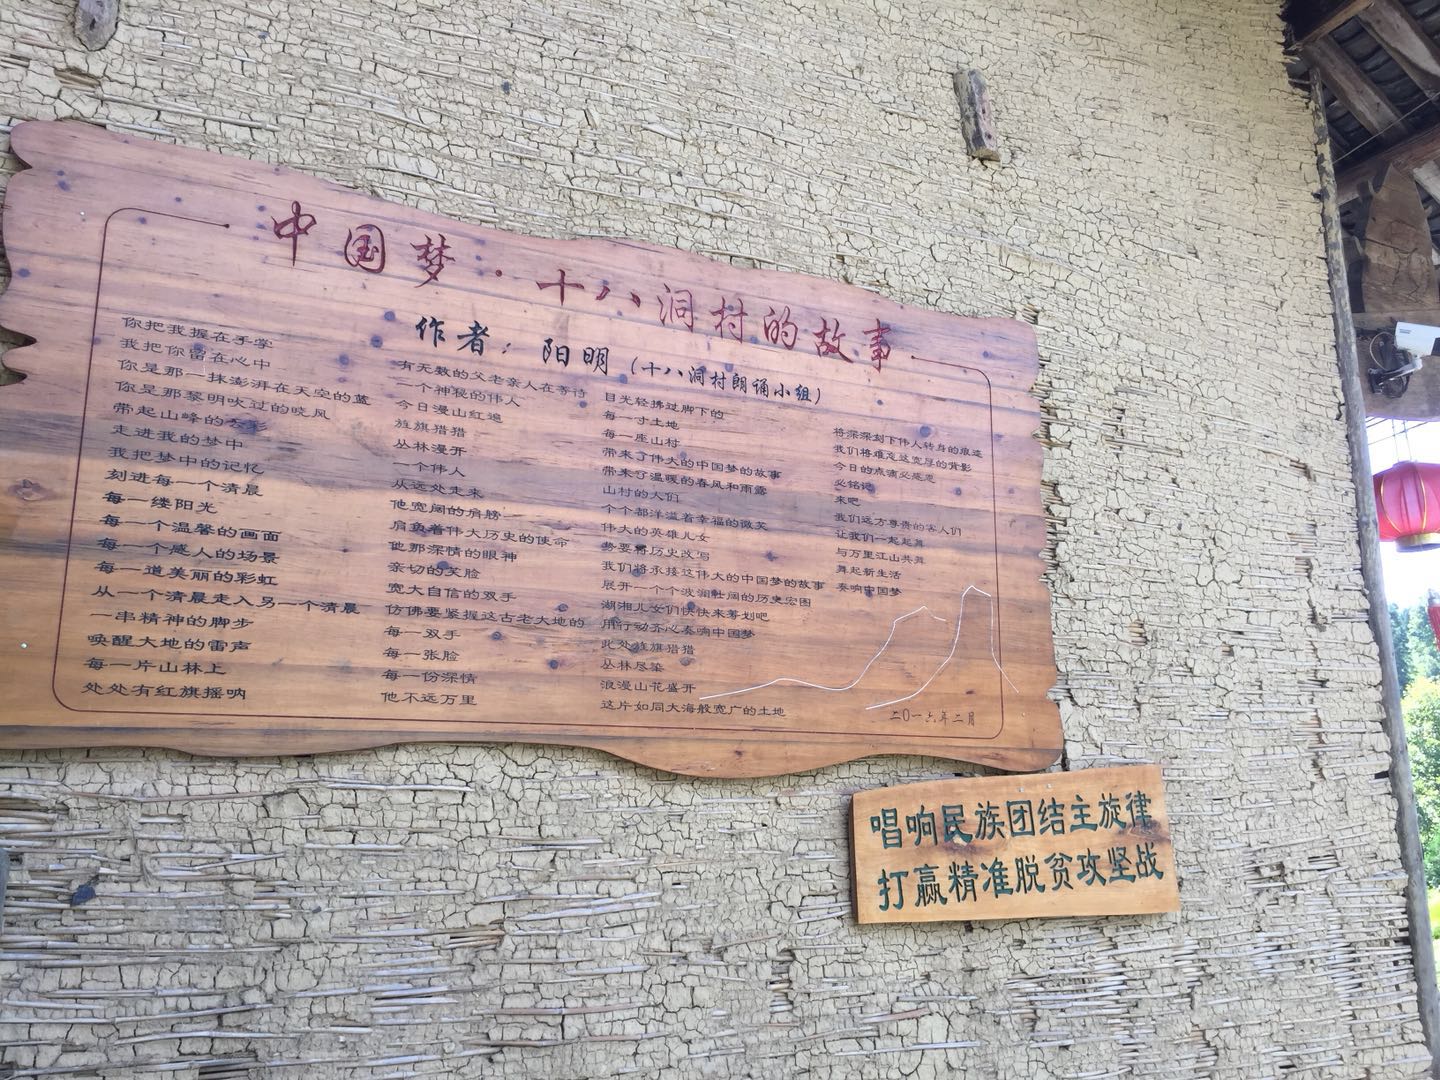 中国梦·十八洞村的故事
作者：阳明（十八洞村朗诵小组）
你把我握在手掌
我把你留在心中
你是那一抹澎湃在天空的蓝
你是那黎明吹过的晓风
带起山峰的云彩
走进我的梦中
我把梦中的记忆
刻进每一个清晨
每一缕阳光
每一个温馨的画面
每一个感人的场景
每一道美丽的彩虹
从一个清晨走入另一个清晨
一串精神的脚步
唤醒大地的雷声
每一片山林上
处处有红旗摇呐
有无数的父老亲人在等待
一个神秘的伟人
今日漫山红遍
旌旗猎猎
丛林漫开
一个伟人
从远处走来
他宽阔的肩膀
肩负着伟大历史的使命
他那深情的眼神
亲切的笑脸
宽大自信的双手
仿佛要紧握这古老大地的
每一双手
每一张脸
每一份深情
他不远万里
目光轻拂过脚下的
每一寸土地
每一座山村
带来了伟大的中国梦的故事
带来了温暖的春风和雨露
山村的人们
个个都洋溢着幸福的微笑
伟大的英雄儿女
势要将历史改写
我们将承接这伟大的中国梦的故事
展开一个个波澜壮阔的历史宏图
湖湘儿女们快快来筹划吧
用行动齐心奏响中国梦
此处旌旗猎猎
丛林尽染
浪漫山花盛开
这片如同大海般宽广的土地
将深深刻下伟人转身的痕迹
我们将难忘这宽厚的背影
今日的点滴必感恩
必铭记
来吧
我们远方尊贵的客人们
让我们一起起舞
与万里江山共舞
舞起新生活
奏响中国梦
二〇一六年二月
唱响民族团结主旋律
打赢精准脱贫攻坚战